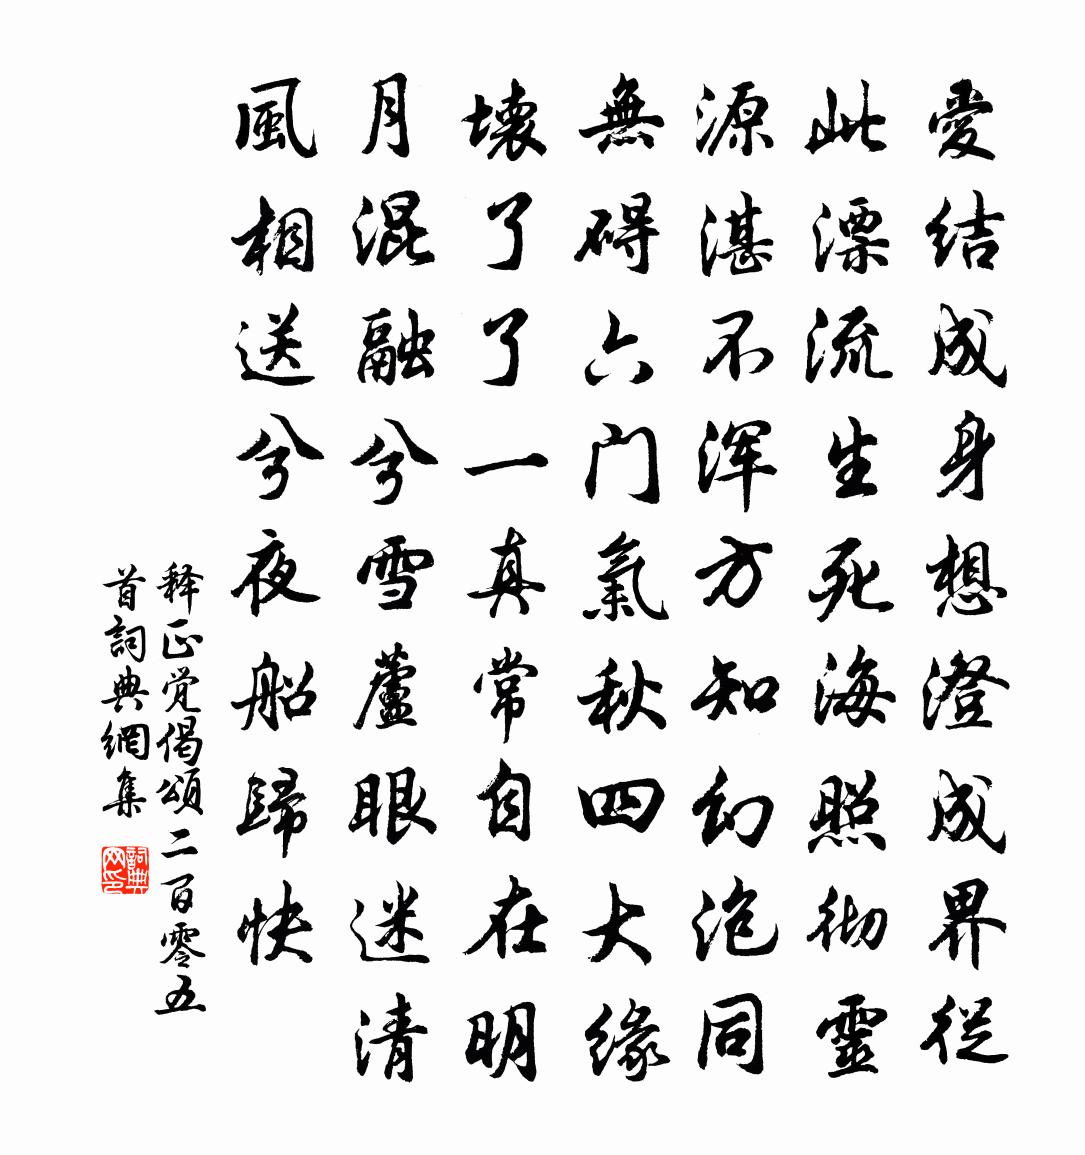 愛结成身想澄成界從
此漂流生死海照彻靈
源湛不浑方知幻泡同
無碍六门氣秋四大缘
壊了了一真常自在明
月混融兮雪蘆眼迷清
風相送兮夜船歸快
释正觉偈頌二百零五
首詞典網集
詞典网印